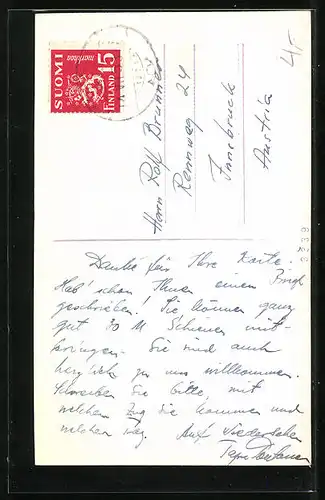 SUOMI
markkaa
15
FINLAND
4,-
Herrn Rolf Brunner
Rennweg 24
Innsbruck
Austria
Danke für Ihre Karte.
Hab' schon Ihnen einen Brief
geschrieben! Sie können ganz
gut 30 M Schienen mit-
bringen. Sie sind auch
herzlich zu uns willkommen.
Schreiben Sie bitte, mit
welchen Zug Sie kommen und
welchen Weg. Auf Wiedersehen